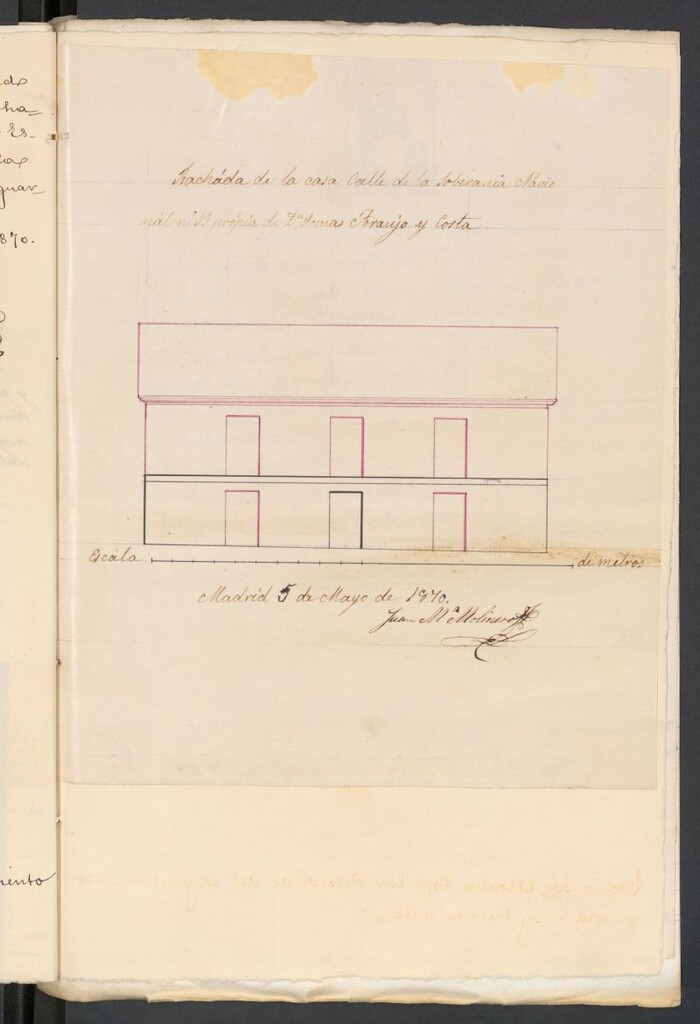 do
ha-
Es-
guar-
1870.
Facháda de la casa Calle de la Soberania Nácio
nál nº propia de Dn Tomas Araujo y Costa
Escála
de metros
Madrid 5 de Mayo de 1870.
Juan Mª Molinero
miento